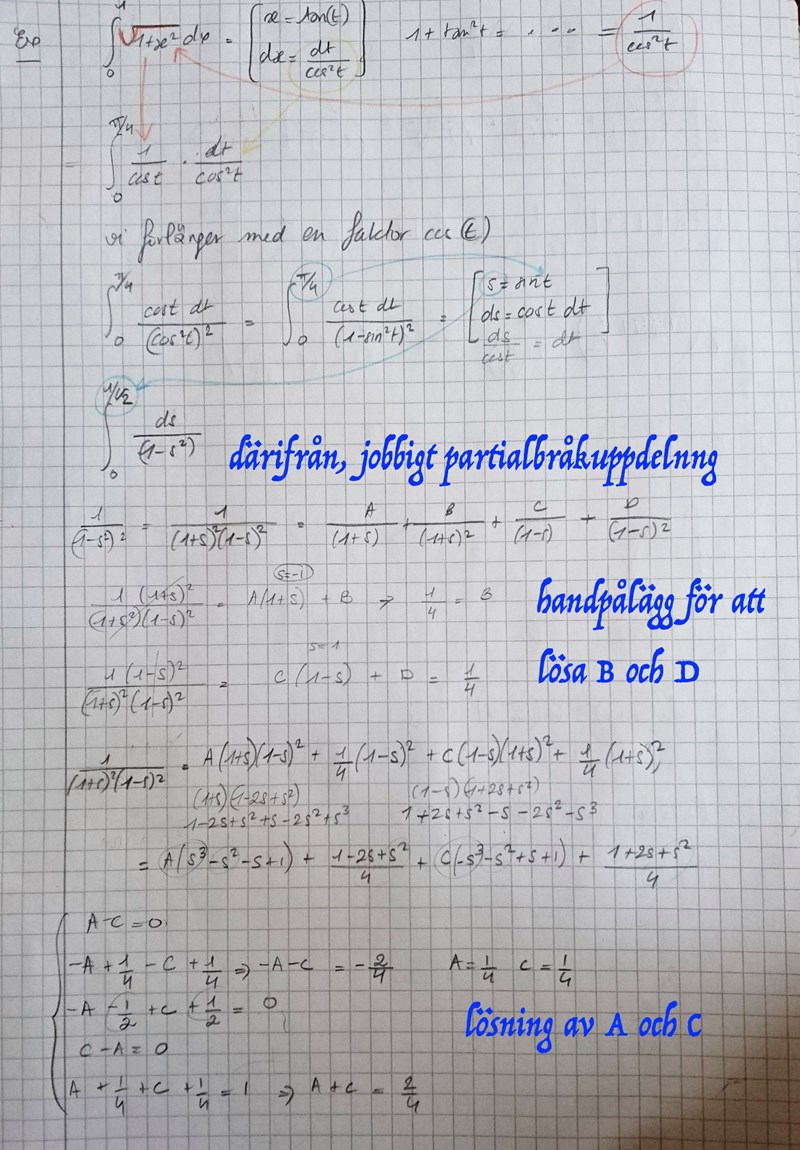 Exp ∫₀¹ √(1+x²) dx = [x = tan(t) dx = dt/cos²t] 1 + tan²t = . . . . = 1/cos²t
= ∫₀^π/4 1/cos t · dt/cos²t
vi förlänger med en faktor cos(t)
∫₀^π/4 cos t dt/(cos²t)² = ∫₀^π/4 cos t dt/(1-sin²t)² = [s = sin t ds = cos t dt ds/cos t = dt]
∫₀^1/√2 ds/(1-s²)
därifrån, jobbigt partialbråkuppdelnng
1/(1-s²)² = 1/((1+s)²(1-s)²) = A/(1+s) + B/(1+s)² + C/(1-s) + D/(1-s)²
s=-1
1 (1+s)²/((1+s²)(1-s)²) = A(1+s) + B ⇒ 1/4 = B
handpålägg för att
lösa B och D
s=1
1 (1-s)²/((1+s)²(1-s)²) = C(1-s) + D = 1/4
1/((1+s)²(1-s)²) = A(1+s)(1-s)² + 1/4(1-s)² + C(1-s)(1+s)² + 1/4(1+s)²
(1+s)(1-2s+s²) (1-s)(1+2s+s²)
1-2s+s²+s-2s²+s³ 1+2s+s²-s-2s²-s³
= A(s³-s²-s+1) + (1-2s+s²)/4 + C(-s³-s²+s+1) + (1+2s+s²)/4
A-C=0
-A + 1/4 - C + 1/4 ⇒ -A-C = -2/4 A=1/4 C=1/4
-A - 1/2 + C + 1/2 = 0
lösning av A och C
C-A=0
A + 1/4 + C + 1/4 = 1 ⇒ A+C = 2/4